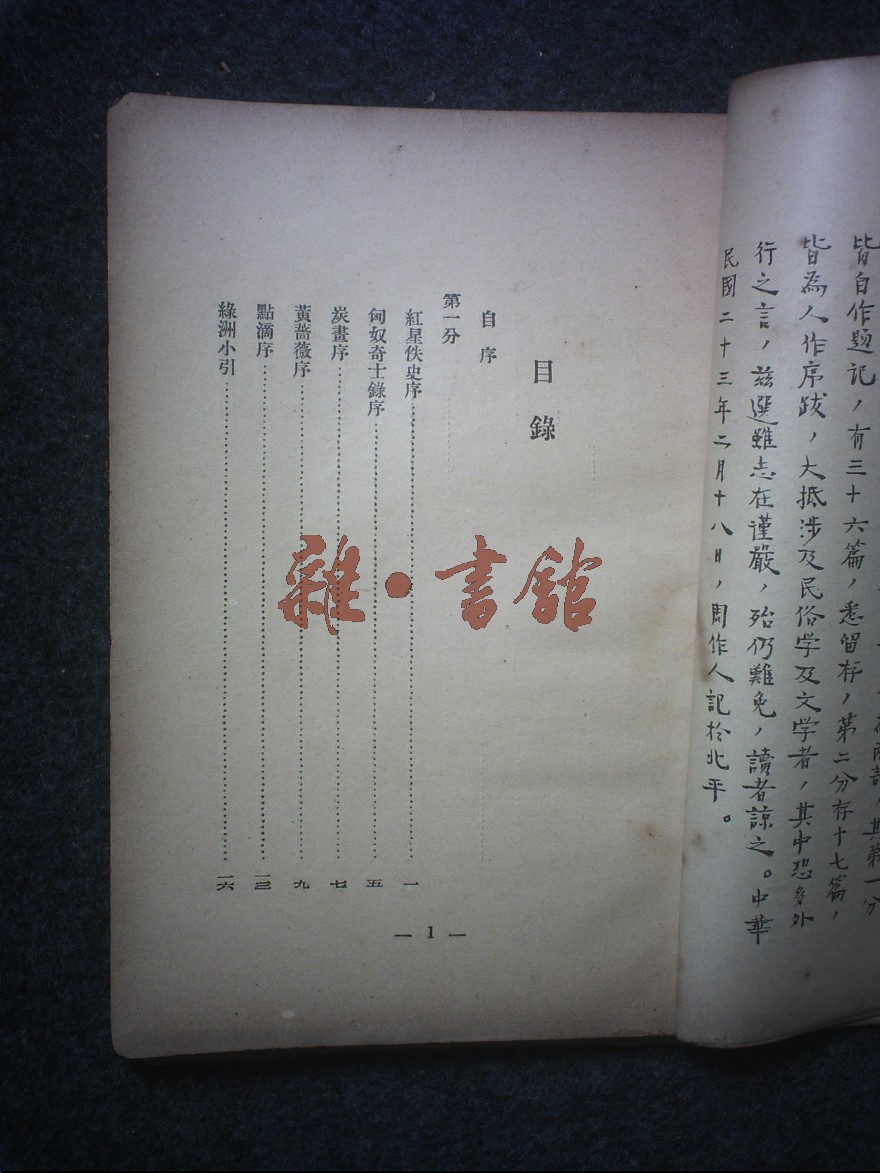 皆自作题記，有三十六篇，悉留存，第二分存十七篇，
皆為人作序跋，大抵涉及民俗学及文学者，其中恐多外
行之言，兹選雖志在谨嚴，殆仍難免，讀者諒之。中華
民國二十三年二月十八日，周作人記於北平。
目錄
自序
第一分
紅星佚史序……一
匈奴奇士錄序……五
炭畫序……七
黃薔薇序……九
點滴序……一三
綠洲小引……一六
— 1 —
雜·書館